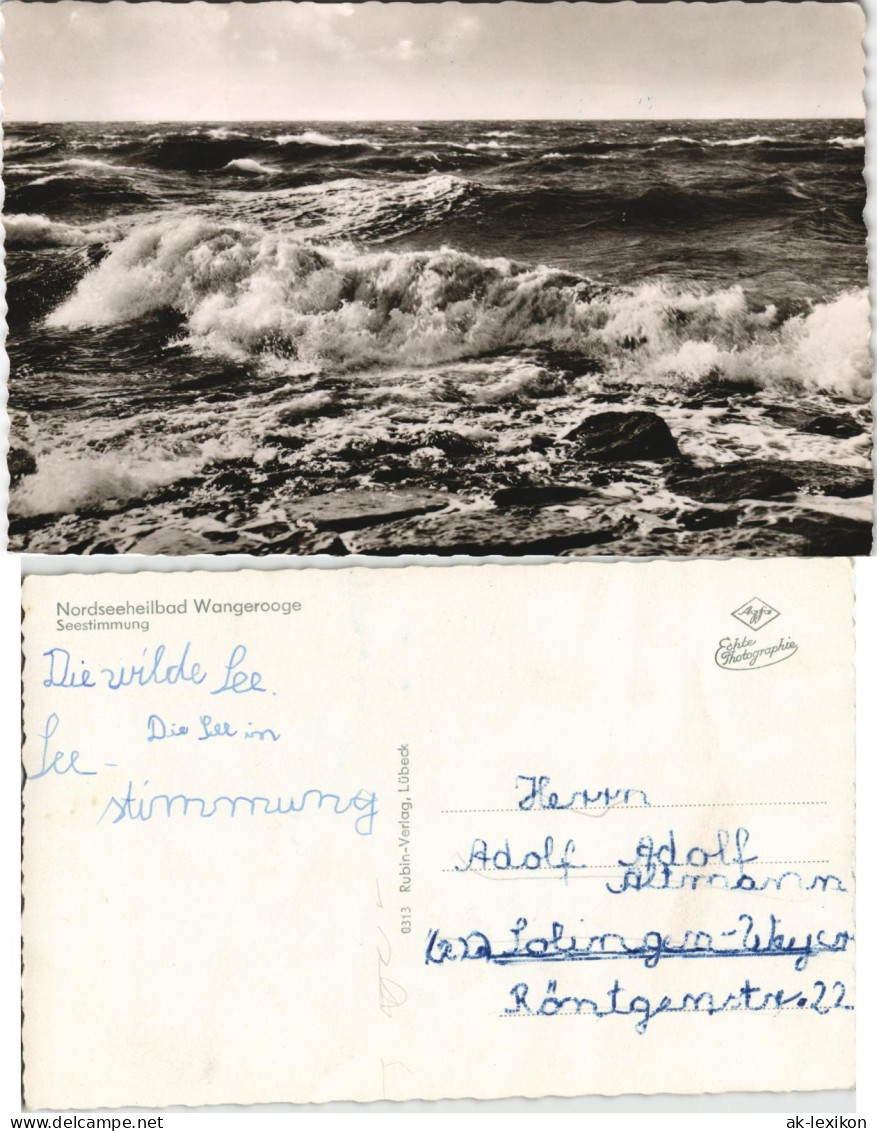 Nordseeheilbad Wangerooge
Seestimmung
Die wilde See.
Die See in
See-
stimmung
0313 Rubin-Verlag, Lübeck
Agfa
Echte
Photographie
Herrn
Adolf Adolf
Altmann
Solingen-Weyer
Röntgenstr. 22
ak-lexikon